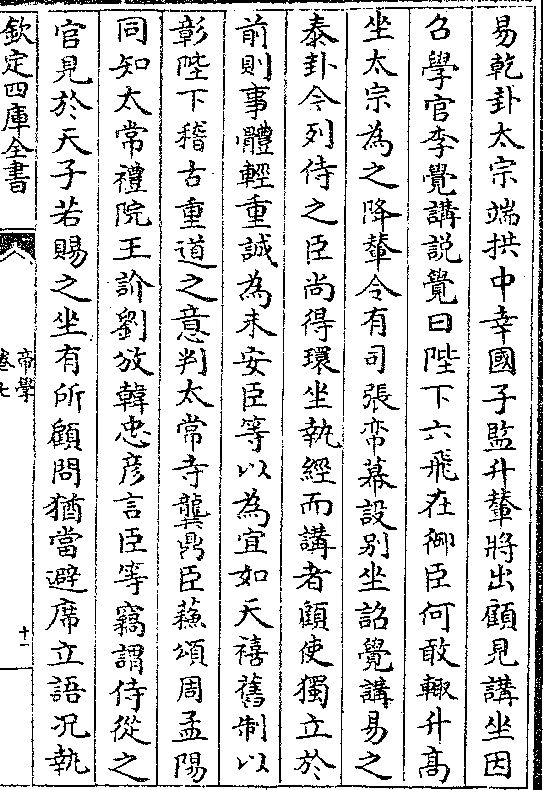 易乾卦太宗端拱中幸國子監升輦將出顧見講坐因
召學官李覺講説覺曰陛下六飛在御臣何敢輙升髙
坐太宗為之降輦令有司張帟幕設别坐詔覺講易之
泰卦令列侍之臣尚得環坐執經而講者顧使獨立於
前則事體輕重誠為未安臣等以為宜如天禧舊制以
彰陛下稽古重道之意判太常寺龔鼎臣蘇頌周孟陽
同知太常禮院王汾劉攽韓忠彦言臣等竊謂侍從之
官見於天子若賜之坐有所顧問猶當避席立語况執
欽定四庫全書
帝學
卷七
十一